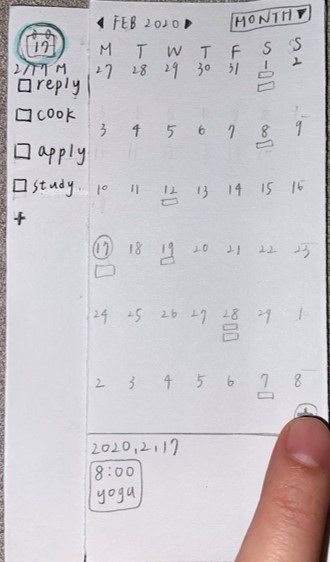 17
2/17 M
reply
cook
apply
study
+
◀ FEB 2020 ▶
MONTH ▼
M T W T F S S
27 28 29 30 31 1 2
3 4 5 6 7 8 9
10 11 12 13 14 15 16
17 18 19 20 21 22 23
24 25 26 27 28 29 1
2 3 4 5 6 7 8
+
2020,2,17
8:00
yoga